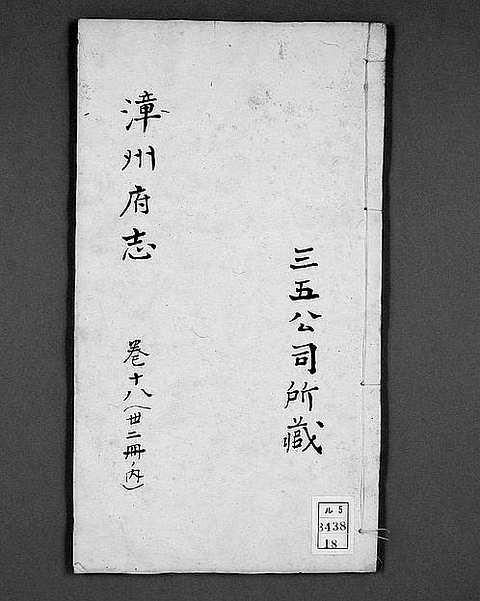 三五公司所蔵
漳州府志
巻十八（卅二冊ノ内）
ル5
3438
18